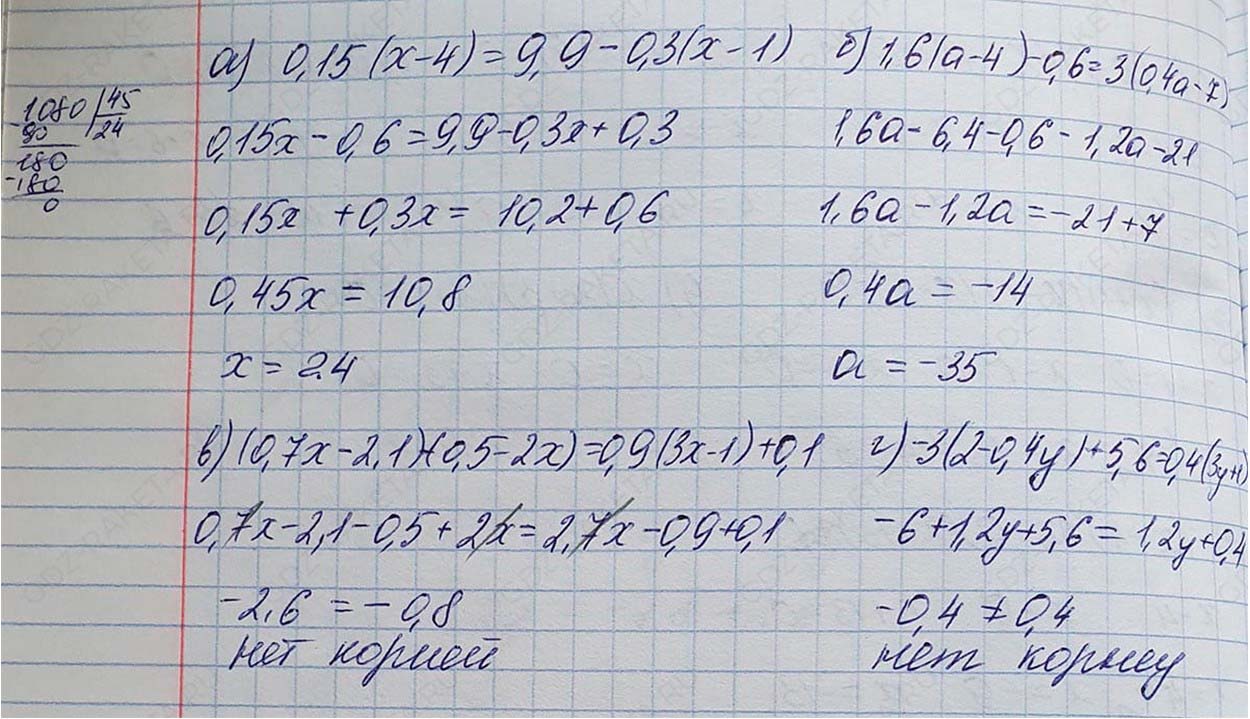 а) 0,15(x-4)=9,9-0,3(x-1)
0,15x-0,6=9,9-0,3x+0,3
0,15x+0,3x=10,2+0,6
0,45x=10,8
x=24
1080 | 45
-90 24
180
-180
0
б) 1,6(a-4)-0,6=3(0,4a-7)
1,6a-6,4-0,6-1,2a-21
1,6a-1,2a=-21+7
0,4a=-14
a=-35
в) (0,7x-2,1)-(0,5-2x)=0,9(3x-1)+0,1
0,7x-2,1-0,5+2x=2,7x-0,9+0,1
-2,6=-0,8
нет корней
г) -3(2-0,4y)+5,6=0,4(3y+1)
-6+1,2y+5,6=1,2y+0,4
-0,4≠0,4
нет корней